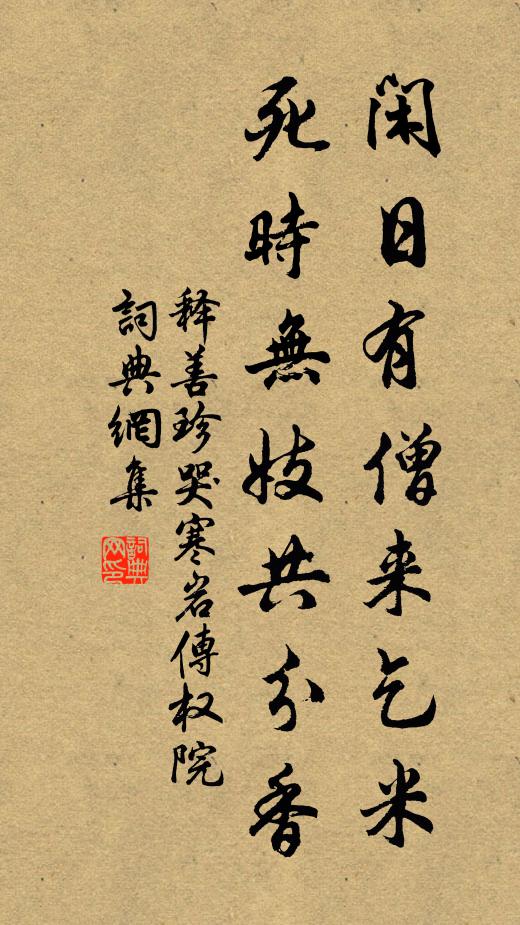 閑日有僧来乞米
死時無妓共分香
释善珍哭寒岩傳权院
詞典網集
詞典网印